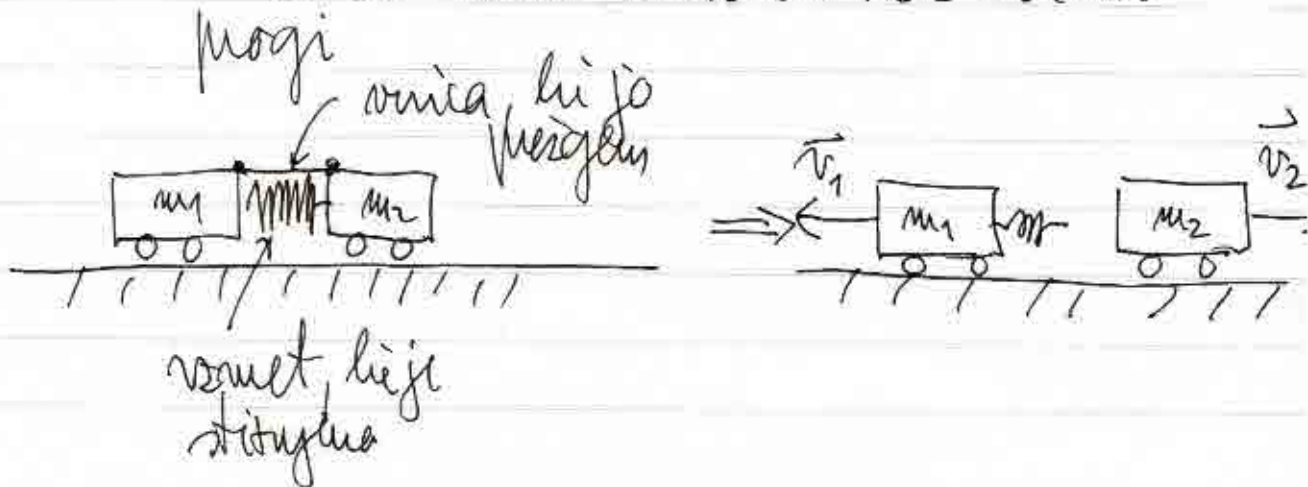 progi
vrvica, ki jo
prežgem
m1
m2
vzmet, ki je
stisnjena
v1
m1
m2
v2